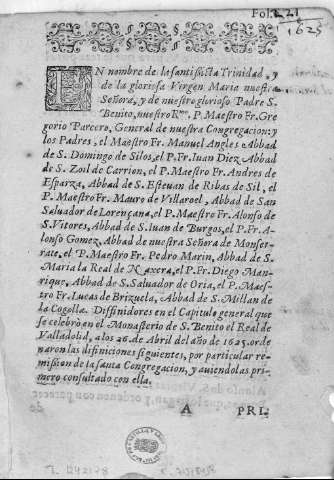 Fol. 121
1625
EN nombre de la santissicta Trinidad, y
de la gloriosa Virgen Maria nuestra
Señora, y de nuestro glorioso Padre S.
Benito, nuestro Rmo. P. Maestro Fr. Gre
gorio Parcero, General de nuestra Congregacion: y
los Padres, el Maestro Fr. Manuel Angles Abbad
de S. Domingo de Silos, el P. Fr. Iuan Diez Abbad
de S. Zoil de Carrion, el P. Maestro Fr. Andres de
Esparza, Abbad de S. Esteuan de Ribas de Sil, el
P. Maestro Fr. Mauro de Villaroel, Abbad de San
Saluador de Lorençana, el P. Maestro Fr. Alonso de
S. Vitores, Abbad de S. Iuan de Burgos, el P. Fr. A-
lonso Gomez, Abbad de nuestra Señora de Monser-
rate, el P. Maestro Fr. Pedro Marin, Abbad de S.
Maria la Real de Naxera, el P. Fr. Diego Man-
rique, Abbad de S. Saluador de Oria, el P. Maes-
tro Fr. Lucas de Brizuela, Abbad de S. Millan de
la Cogolla. Diffinidores en el Capitulo general que
se celebrò en el Monasterio de S. Benito el Real de
Valladolid, a los 26. de Abril del año de 1625. orde
naron las difiniciones siguientes, por particular re-
mission de la santa Congregacion, y auiendolas pri-
mero consultado con ella.
A PRI-